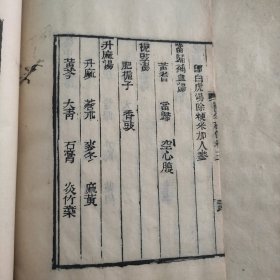 即白虎湯除粳米加人蔘
當歸補血湯
黃耆 當歸 空心服
梔豉湯
肥梔子 香豉
升麻湯
升麻 蒼朮 麥冬 麻黃
黃芩 大青 石膏 淡竹葉